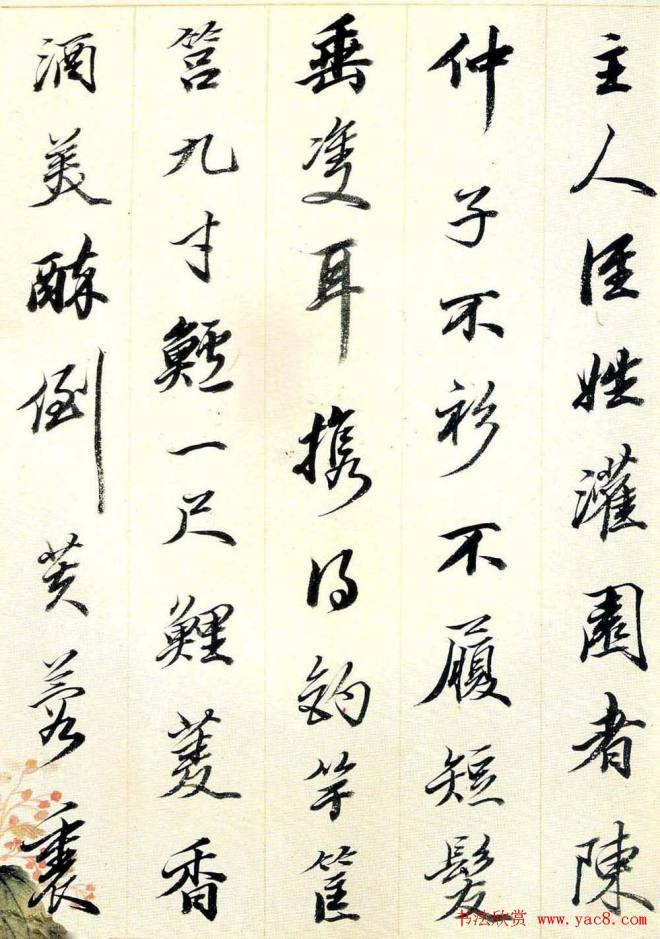 主人姓灌園者陳
仲子不衫不履短髮
垂雙耳携得釣竿筐
筥九寸鱸一尺鯉菱香
酒美醉倒芙蓉裏
书法欣赏 www.yac8.com